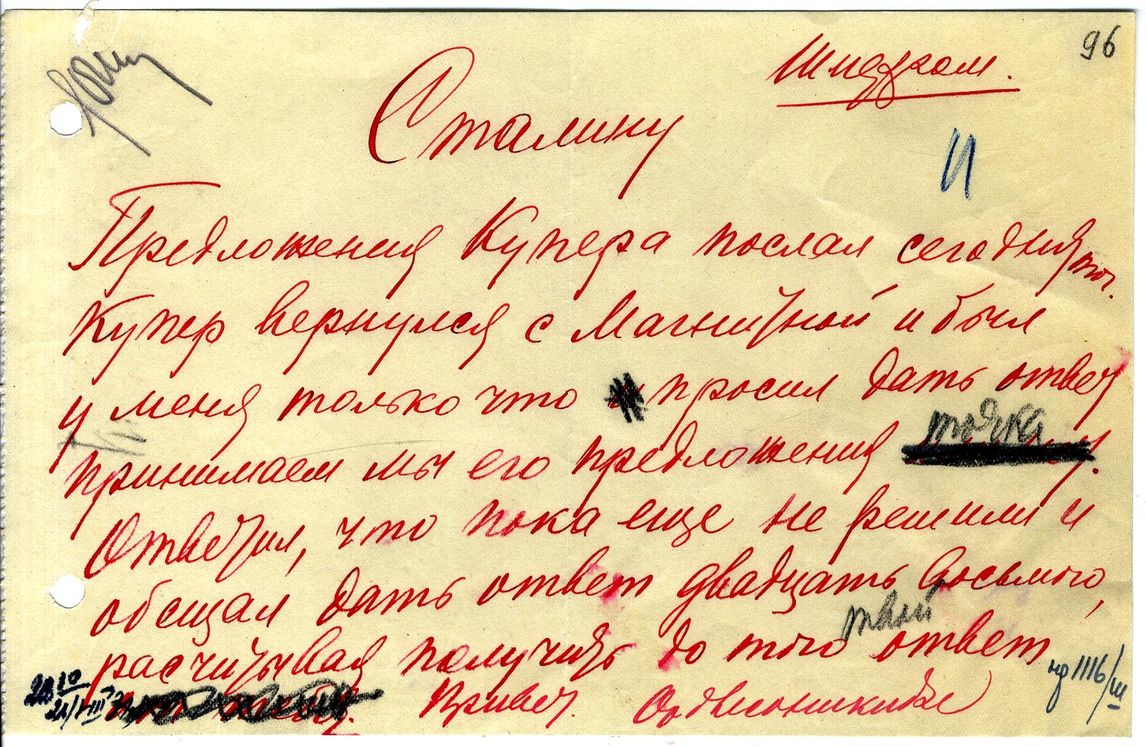 96
Шифром.
Сталину
Предложения Купера послал сегодня тчк.
Купер вернулся с Магнитной и был
у меня только что просил дать ответ
принимаем мы его предложения точка
Ответил, что пока еще не решили и
обещал дать ответ двадцать восьмого,
расчитывая получить до того твой ответ
Привет. Орджоникидзе
нр 1116/ш